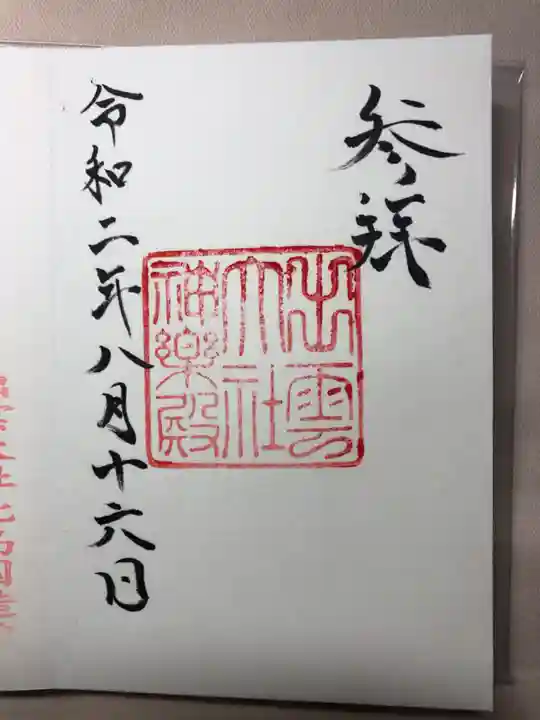 参拝
出雲
大社
神楽殿
令和二年八月十六日